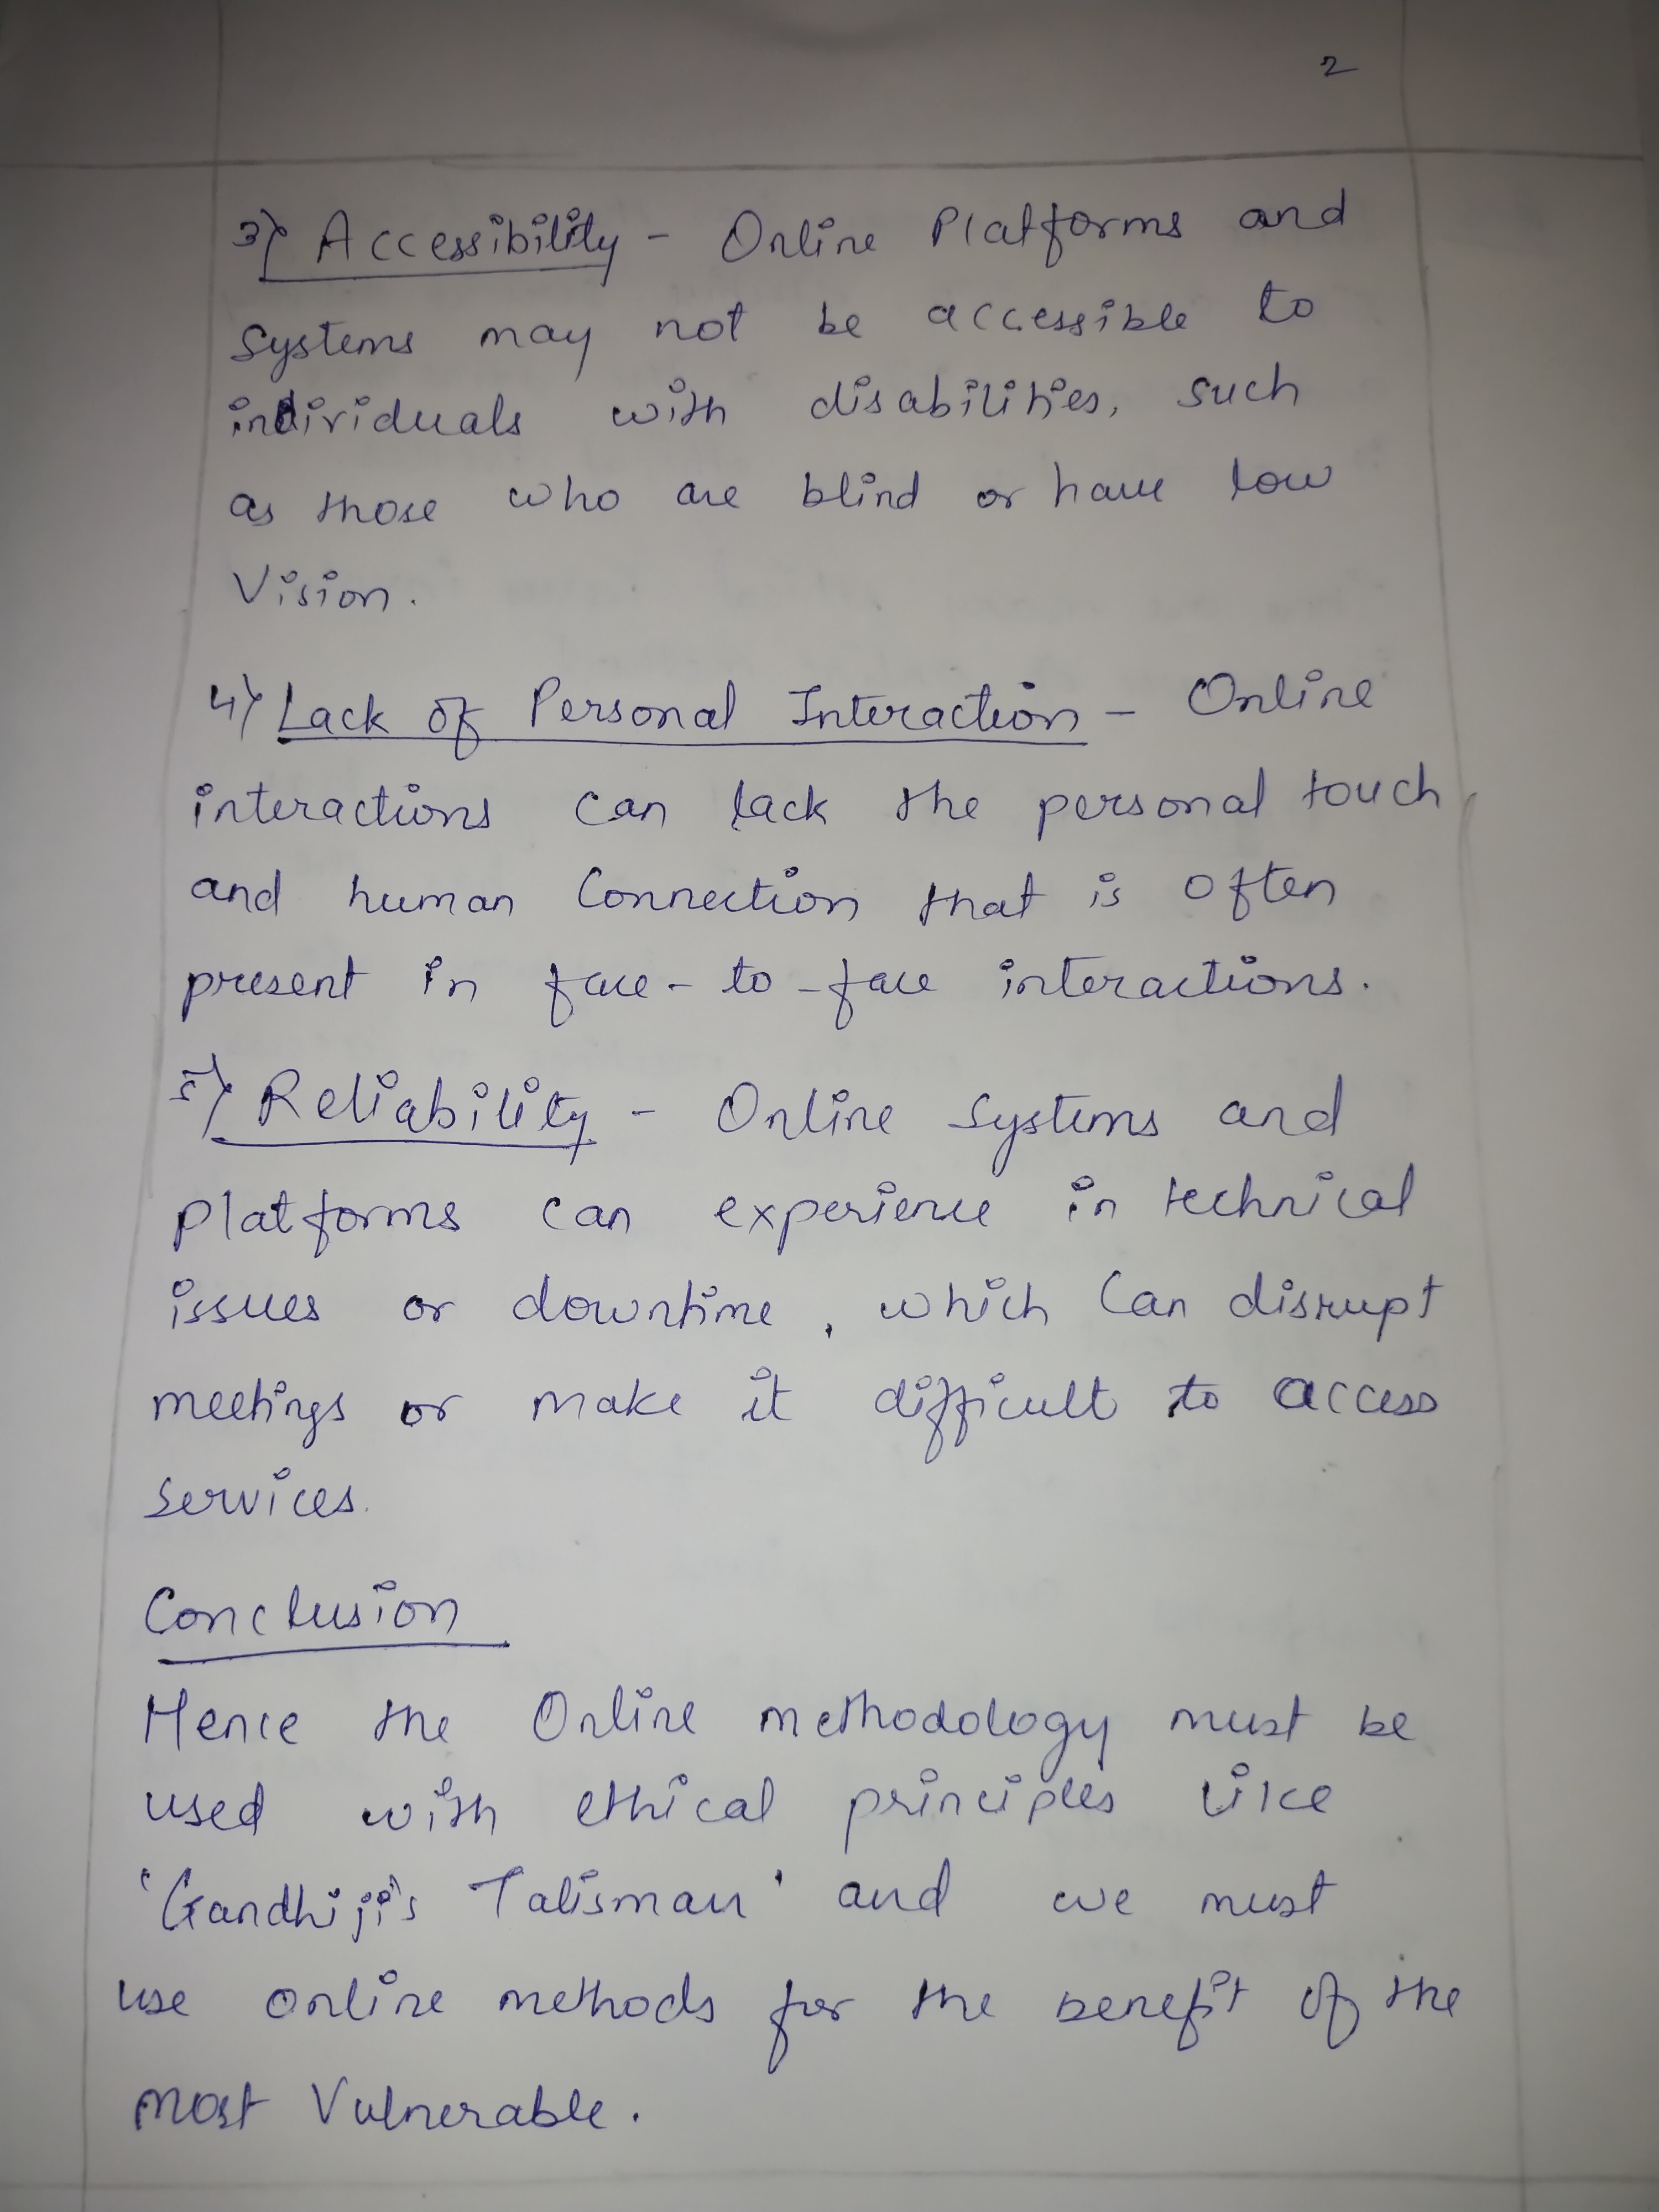 2
3) Accessibility - Online Platforms and
Systems may not be accessible to
individuals with disabilities, such
as those who are blind or have low
Vision.
4) Lack of Personal Interaction - Online
interactions can lack the personal touch
and human Connection that is often
present in face-to-face interactions.
5) Reliability - Online Systems and
platforms can experience in technical
issues or downtime, which Can disrupt
meetings or make it difficult to access
services.
Conclusion
Hence the Online methodology must be
used with ethical principles like
'Gandhiji's Talisman' and we must
use online methods for the benefit of the
most Vulnerable.